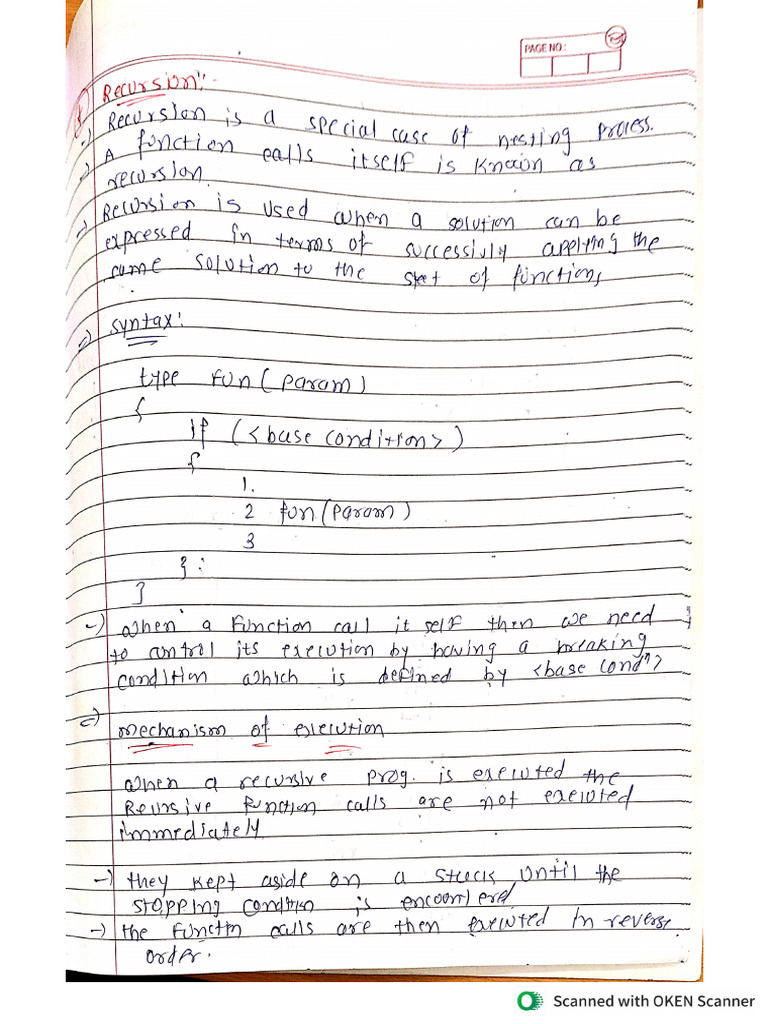 PAGE NO:
Recursion":-
-) Recursion is a special case of nesting process.
-) A function calls itself is known as
recursion.
-) Recursion is used when a solution can be
expressed in terms of successivly applying the
same solution to the set of function,
=) syntax:
type fun (param)
{
if (<base condition>)
{
1.
2 fun (param)
3
} :
}
-) when a function call it self then we need
to control its execution by having a breaking
condition which is defined by <base condⁿ>
=) mechanism of execution
when a recursive prog. is executed the
Recursive function calls are not executed
immediately
-) they kept aside on a stack until the
stopping condition is encounterd
-) the functin calls are then executed in reverse
order.
Scanned with OKEN Scanner